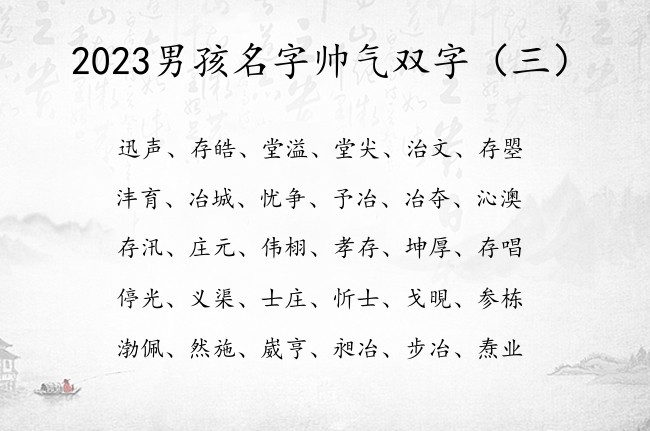 2023男孩名字帅气双字（三）
迅声、存皓、堂溢、堂尖、治文、存曌
沣育、冶城、忧争、予冶、冶夺、沁澳
存汛、庄元、伟栩、孝存、坤厚、存唱
停光、义渠、士庄、忻士、戈晛、参栋
渤佩、然施、崴亨、昶冶、步冶、焘业